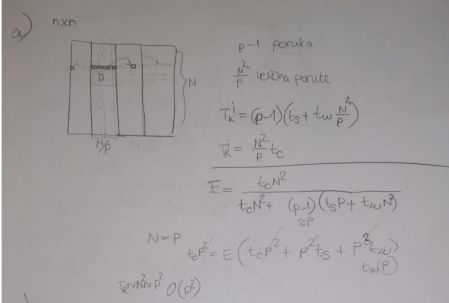 a) n×n
N
D
N/p
p-1 poruka
N²/p veličina poruke
T_k^i = (p-1)(t_s + t_w N²/p)
T_R^i = N²/p t_c
E = t_c N² / (t_c N² + (p-1) (t_s p + t_w N²))
≈p
N = p
t_c p² = E (t_c p² + p² t_s + p³ t_w)
t_w(p)
O(p²)